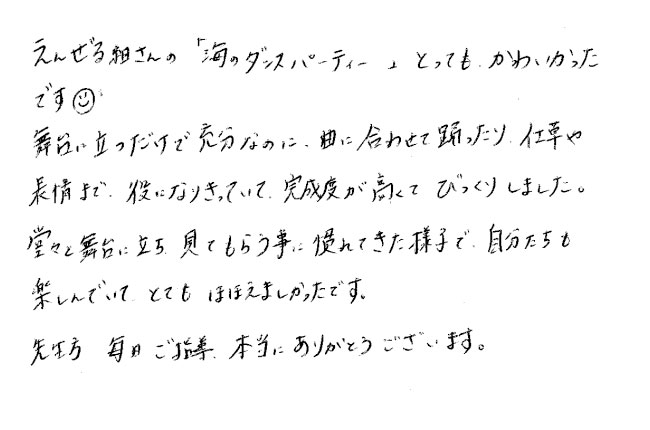 えんぜる組さんの「海のダンスパーティー」とっても、かわいかった
です☺
舞台に立つだけで充分なのに、曲に合わせて踊ったり、仕草や
表情まで、役になりきっていて、完成度が高くてびっくりしました。
堂々と舞台に立ち、見てもらう事に慣れてきた様子で、自分たちも
楽しんでいて、とてもほほえましかったです。
先生方 毎日ご指導、本当にありがとうございます。